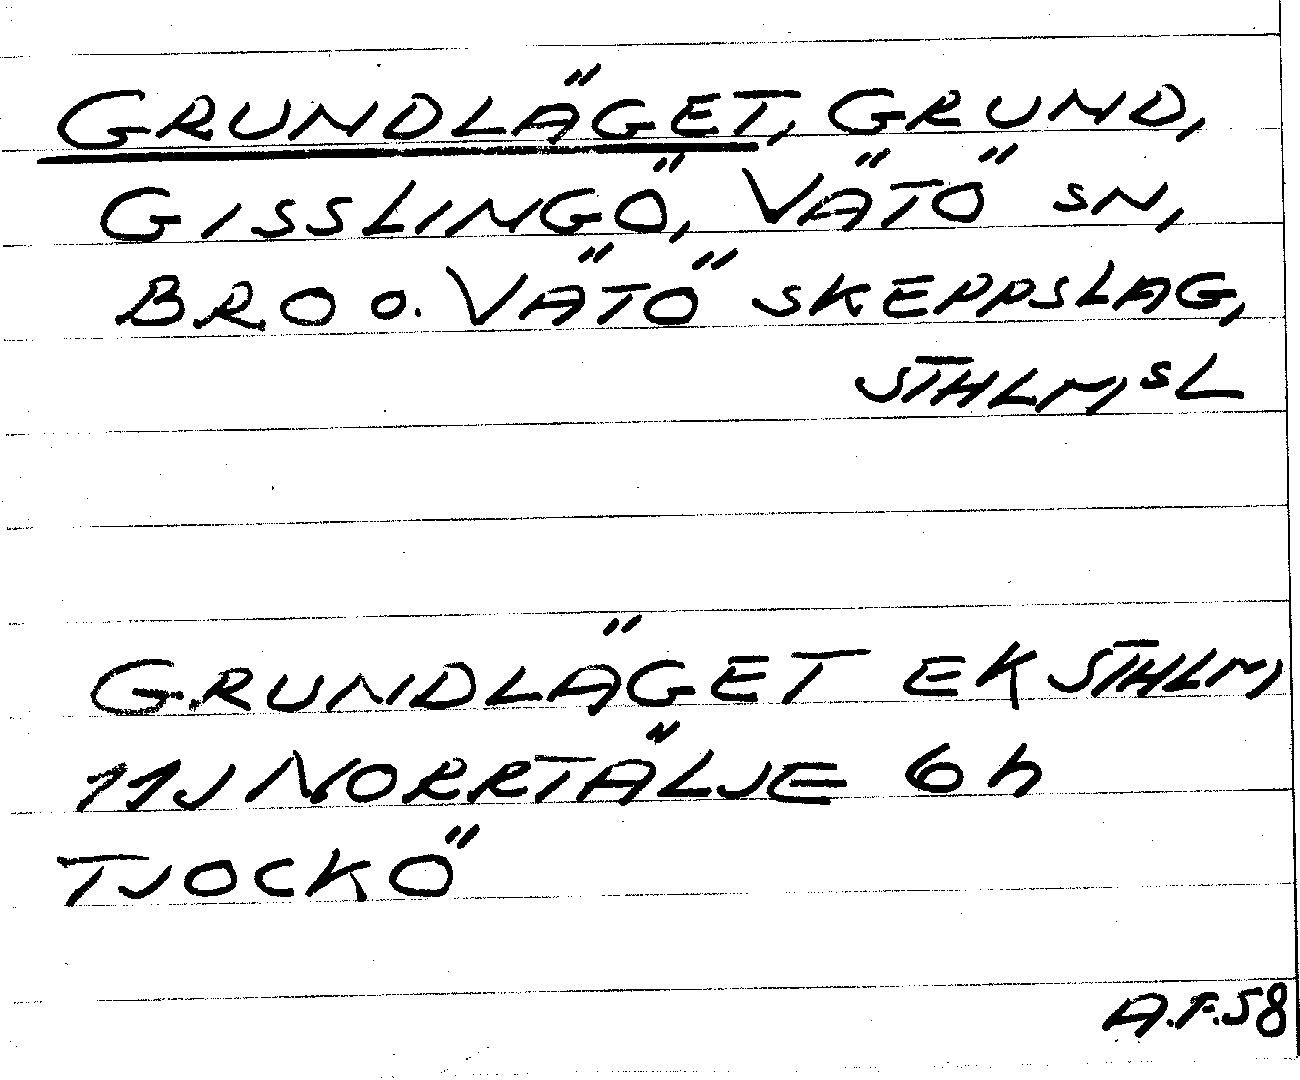 GRUNDLÄGET, GRUND,
GISSLINGÖ, VÄTÖ SN,
BRO O. VÄTÖ SKEPPSLAG,
STHLM,S L
GRUNDLÄGET EK STHLM,
11J NORRTÄLJE 6 h
TJOCKÖ
A.F.58